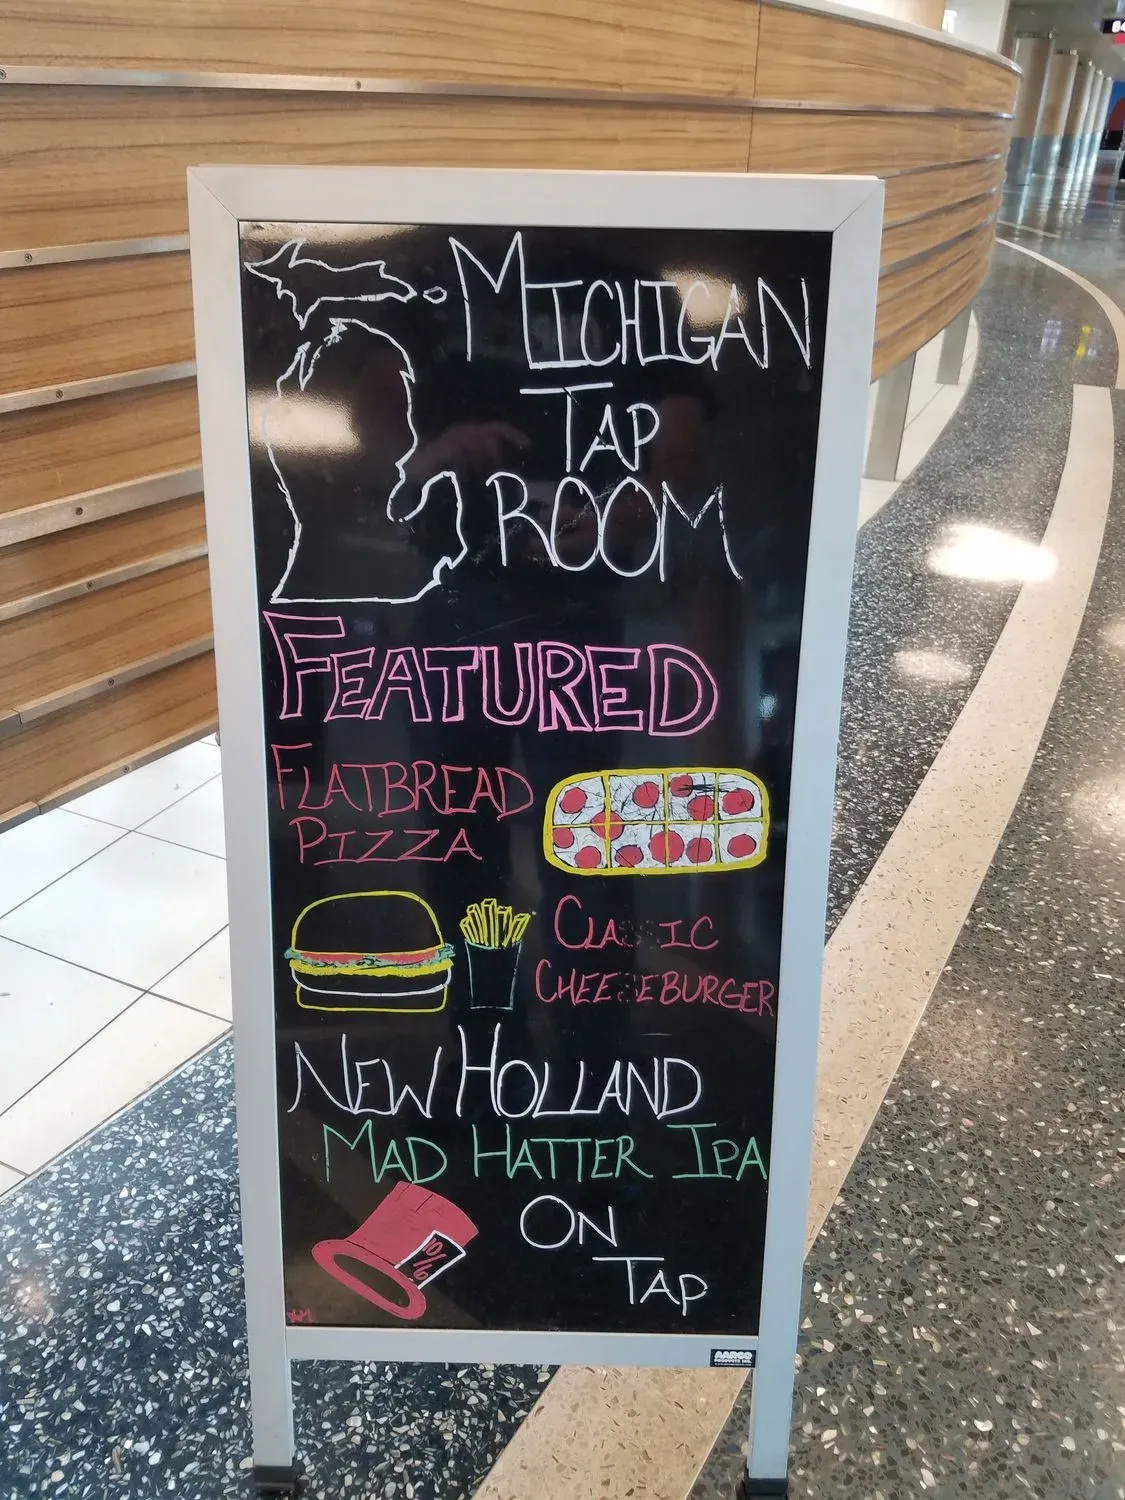 MICHIGAN
TAP
ROOM
FEATURED
FLATBREAD
PIZZA
CLA IC
CHEE EBURGER
NEW HOLLAND
MAD HATTER IPA
ON
TAP
10/6
AARCO
PRODUCTS INC.